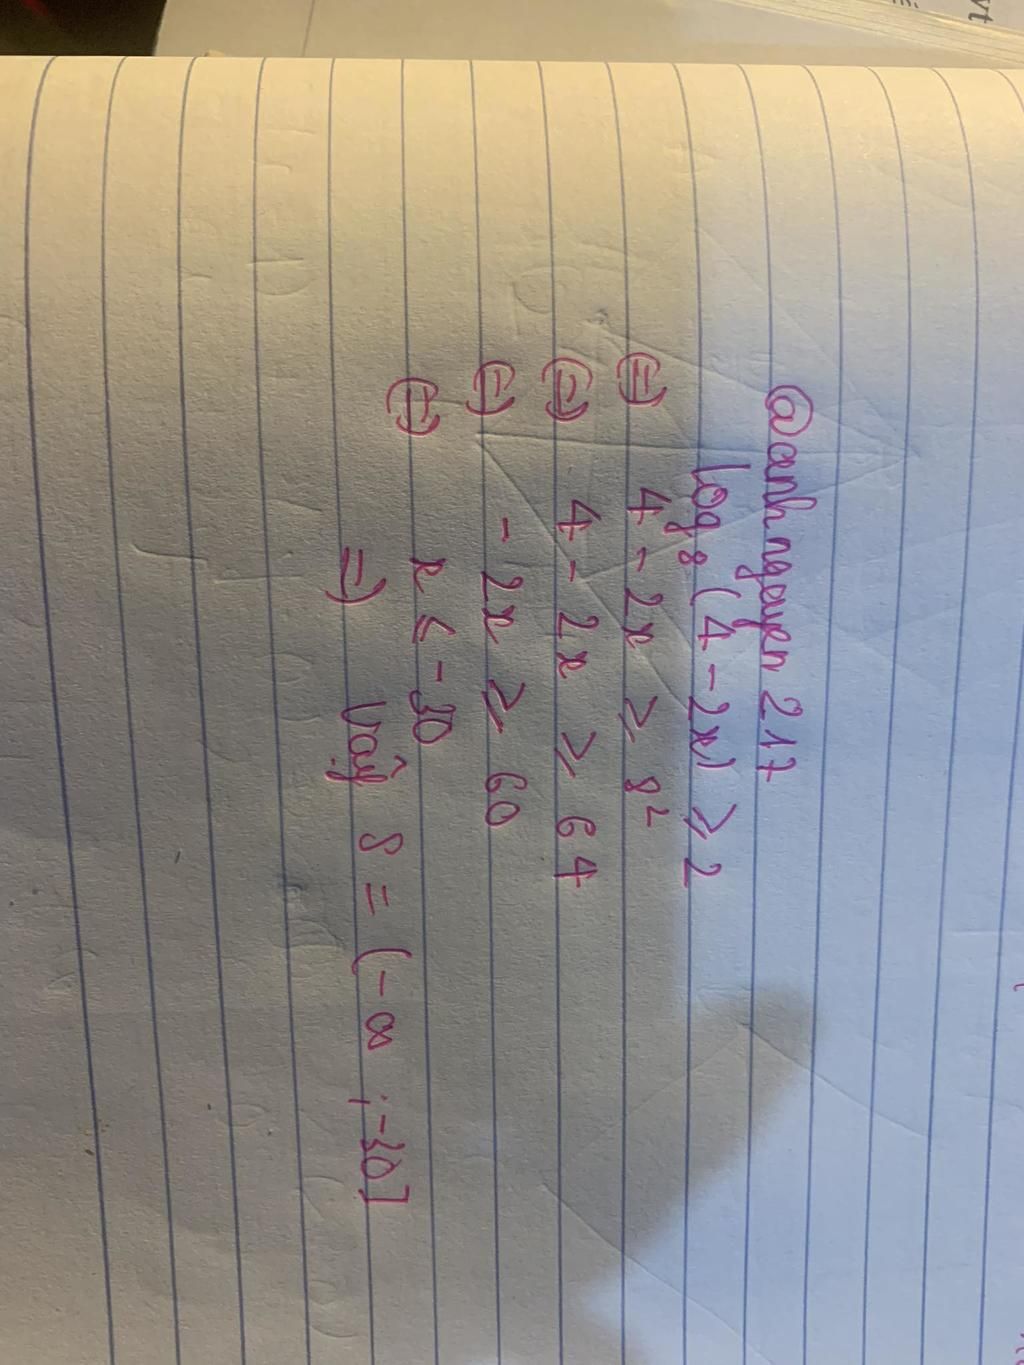 @anhnguyen217
log₈(4-2x) ≥ 2
⇔ 4-2x ≥ 8²
⇔ 4-2x ≥ 64
⇔ -2x ≥ 60
⇔ x ≤ -30
=) Vậy S = (-∞ ; -30]